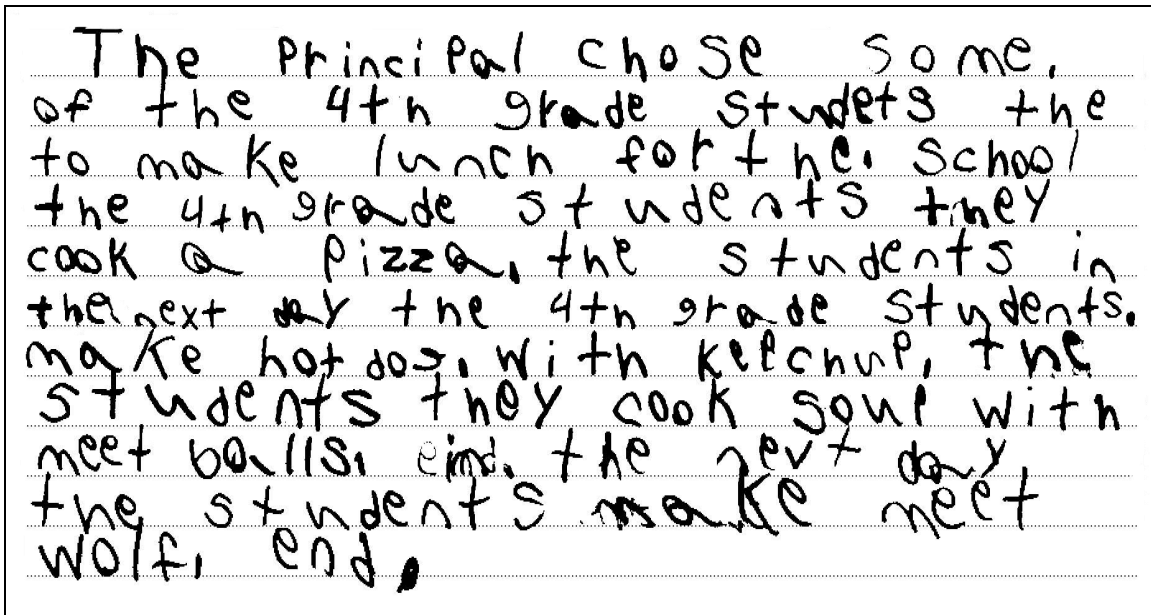 The principal chose some.
of the 4th grade studets the
to make lunch for the. school
the 4th grade students they
cook a pizza. the students in
the next day the 4th grade students.
make hot dos. with kecchup. the
students they cook soup with
meet balls. eind. the next day
the students make meet
wolf. end.